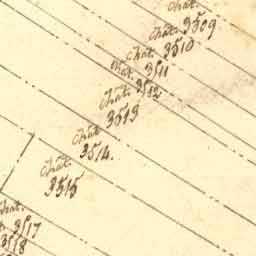 chat.
chat. 3509
chat. 3510
chat. 3511
chat. 3512
chat. 3513
chat. 3514.
chat. 3515
chat.
3517
3518